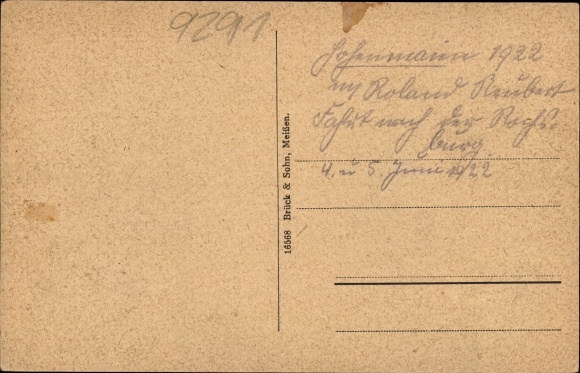 9291
1922
m/ Roland Neubert
Fahrt nach der Rochs-
burg
4. u 5. Juni 1922
16568 Brück & Sohn, Meißen.